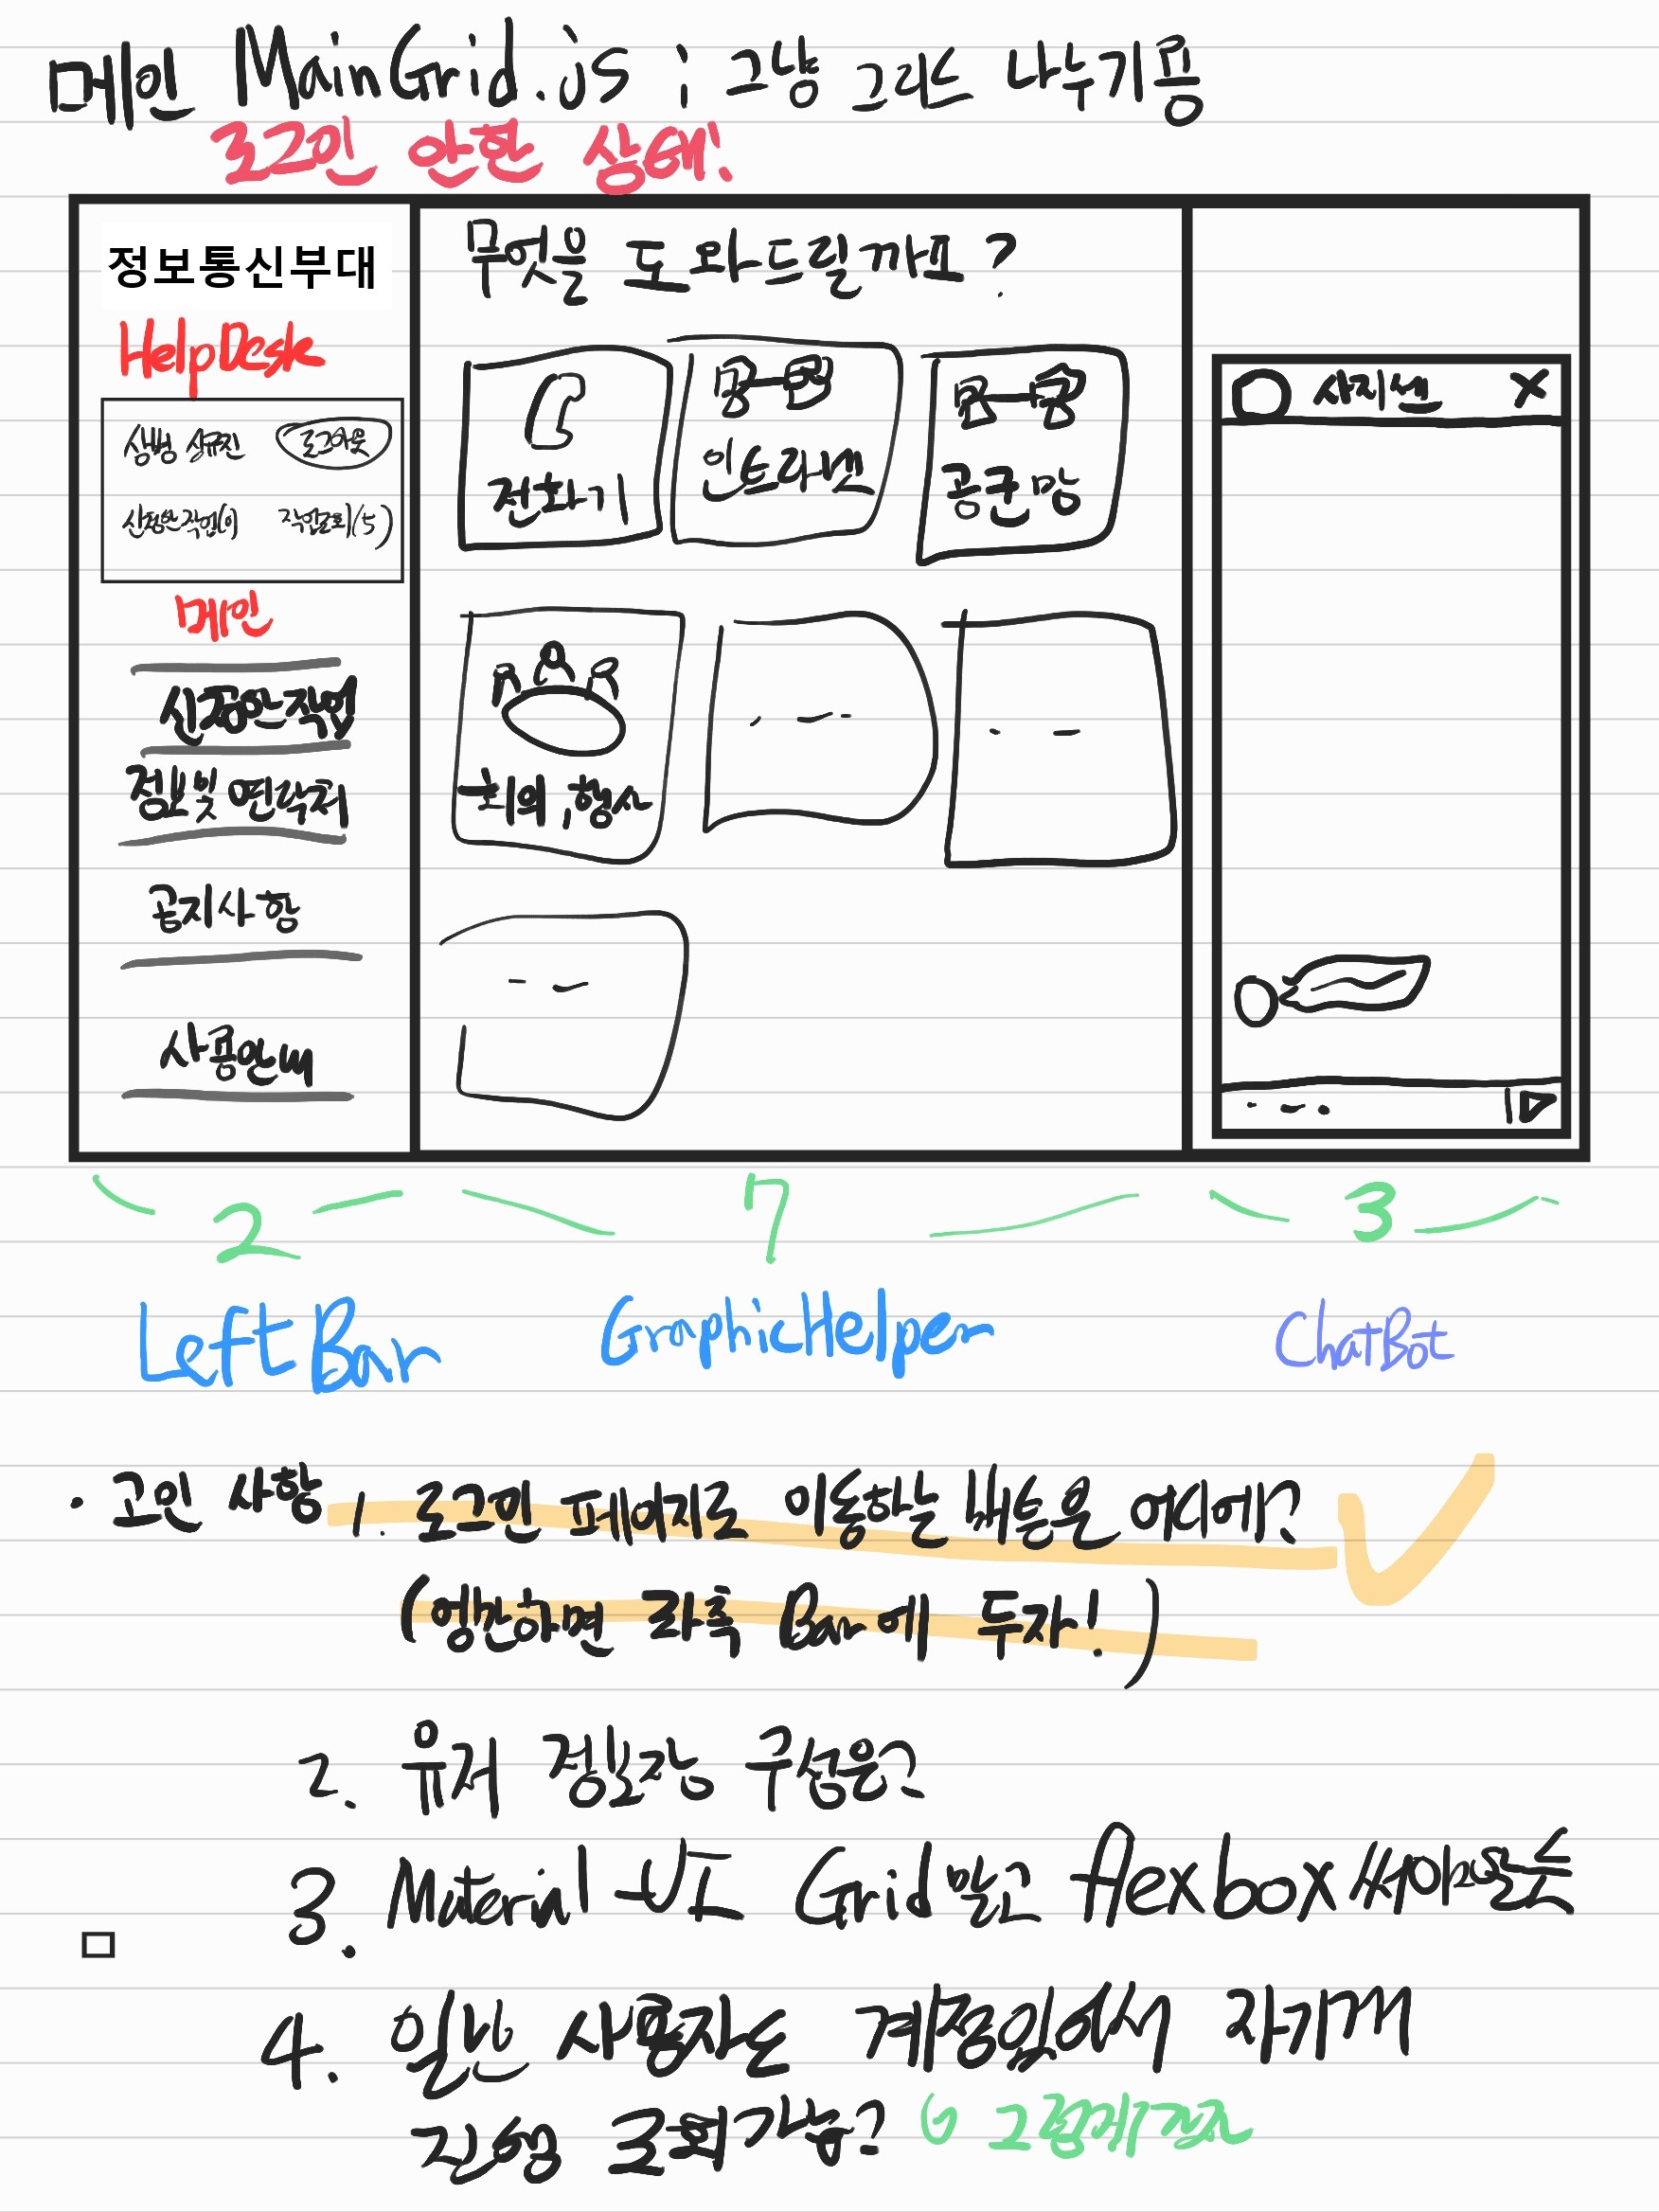 메인 MainGrid.js ; 그냥 그리드 나누기용
로그인 안한 상태!
정보통신부대
HelpDesk
로그아웃
신청한작업(0) 작업조회(5)
메인
신청한작업
정보및 연락처
공지사항
사용안내
무엇을 도와드릴까요?
전화기
인트라넷
공군망
회의,행사
사지쎈 X
2 7 3
LeftBar GraphicHelper ChatBot
· 고민 사항 1. 로그인 페이지로 이동하는 버튼은 어디에?
(웬만하면 좌측 Bar에 두자!)
2. 유저 정보창 구성은?
3. Material-UI Grid말고 flexbox써야할듯
4. 일반 사용자는 계정있어서 자기께
진행 조회가능?